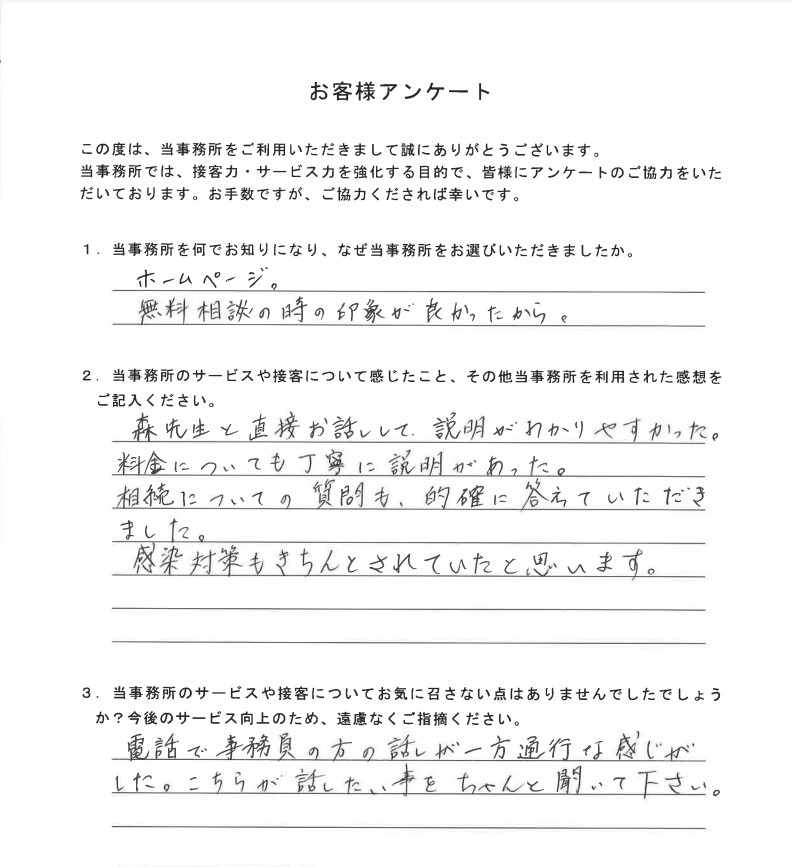 お客様アンケート
この度は、当事務所をご利用いただきまして誠にありがとうございます。
当事務所では、接客力・サービス力を強化する目的で、皆様にアンケートのご協力をいた
だいております。お手数ですが、ご協力くだされば幸いです。
1．当事務所を何でお知りになり、なぜ当事務所をお選びいただきましたか。
ホームページ。
無料相談の時の印象が良かったから。
2．当事務所のサービスや接客について感じたこと、その他当事務所を利用された感想を
ご記入ください。
森先生と直接お話しして、説明がわかりやすかった。
料金についても丁寧に説明があった。
相続についての質問も、的確に答えていただき
ました。
感染対策もきちんとされていたと思います。
3．当事務所のサービスや接客についてお気に召さない点はありませんでしたでしょう
か？今後のサービス向上のため、遠慮なくご指摘ください。
電話で事務員の方の話しが一方通行な感じが
した。こちらが話したい事をちゃんと聞いて下さい。